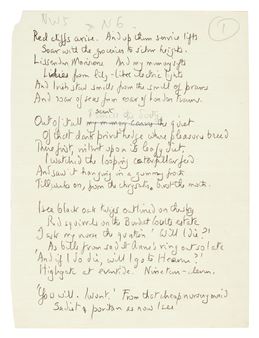 NW5 & N6.
1
Red cliffs arise. And up them service lifts
Soar with the groceries to silver heights.
Lissenden Mansions. And my memory sifts
Lilies from lily-like electric lights
And Irish stew smells from the smell of prams
And roar of seas from roar of London trams.
Out of it all my memory carves the quiet
Of that dark privet hedge where pleasures breed
There first, intent upon its leafy diet,
I watched the looping caterpillar feed
And saw it hanging in a gummy froth
Till, weeks on, from the chrysalis burst the moth.
I see black oak twigs outlined on the sky
Red squirrels on the Burdett Coutts estate.
I ask my nurse the question 'Will I die?'
As bells from sad St Anne's ring out so late
'And if I do die, will I go to Heaven?'
Highgate at eventide. Nineteen-eleven.
'You will. I won't.' From that cheap nursery maid
Sadist & puritan as now I see